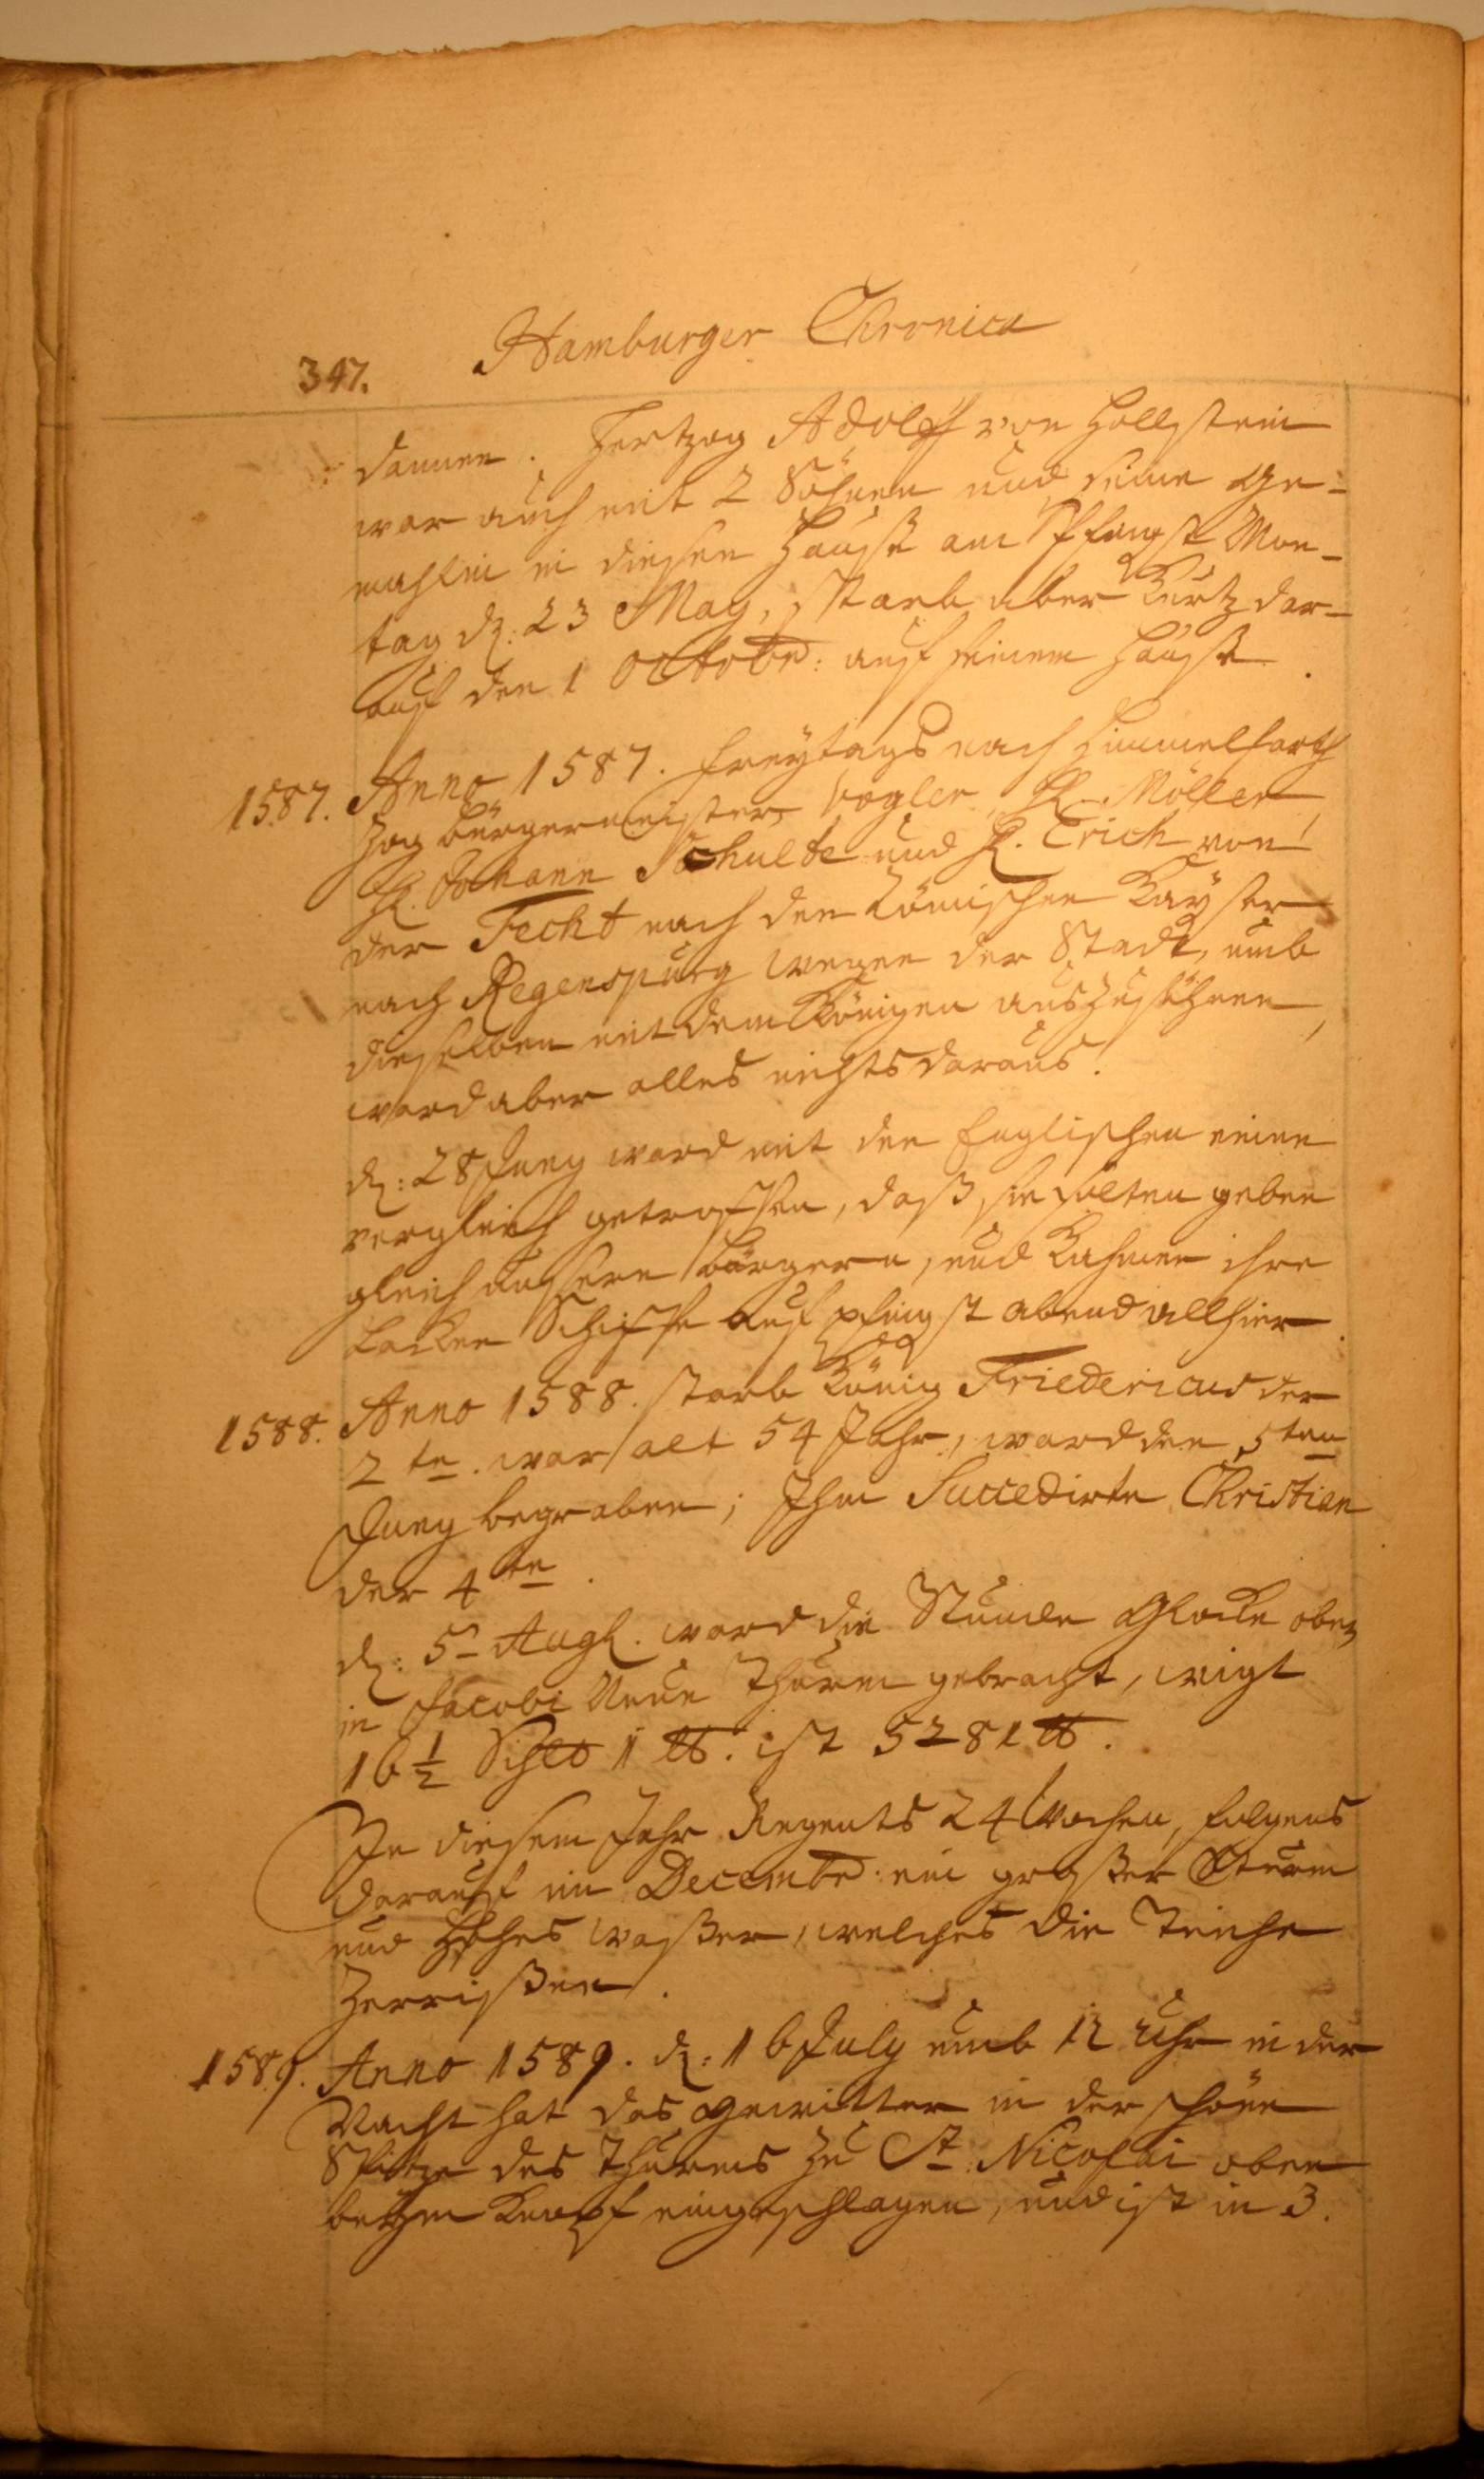 Hamburger Chronica
347.
dannen. Hertzog Adolff von Hollstein
war auch mit 2 Söhnen und seine Ge-
mahlin in diesen Hauße am Pfingst Mon-
tag d: 23 May, starb aber Kurtz dar-
auf den 1 Octobr: auf seinem Hauße.
1587. Anno 1587. Freÿtags nach Himmelfarth
Zog Bürgermeister Vogler, H. Möller,
H. Johann Schulte und H. Erich von
der Fecht nach den Römischen Kaÿser
nach Regenspurg wegen der Stadt, umb
dieselben mit dem Königen auszusöhnen,
ward aber alles nichts daraus.
d: 28 Juny ward mit den Englischen einen
vergleich getroffen, daß sie solten geben
gleich unsern Bürgern, und Kahmen ihre
Lacken Schiffe auf pfingst abend allhier.
1588. Anno 1588. starb König Friedericus der
2te. war alt 54 Jahr, ward den 5ten
Juny begraben; Ihm Succedirte Christian
der 4te.
d: 5 Aug. ward die Stunde Glocke oben
in Jacobi Neue Thurm gebracht, wigt
16 1/2 Schlb 1 lb. ist 5281 lb.
In diesem Jahr Regents 24 Wochen, folgens
darauf im Decembr: ein großer Sturm
und Hohes waßer, welches die Teiche
Zerrißen.
1589. Anno 1589. d: 16 July umb 12 Uhr in der
Nacht hat das Gewitter in der schöne
Spitze des Thurms zu St. Nicolai oben
beÿm Knopf eingeschlagen, und ist in 3.